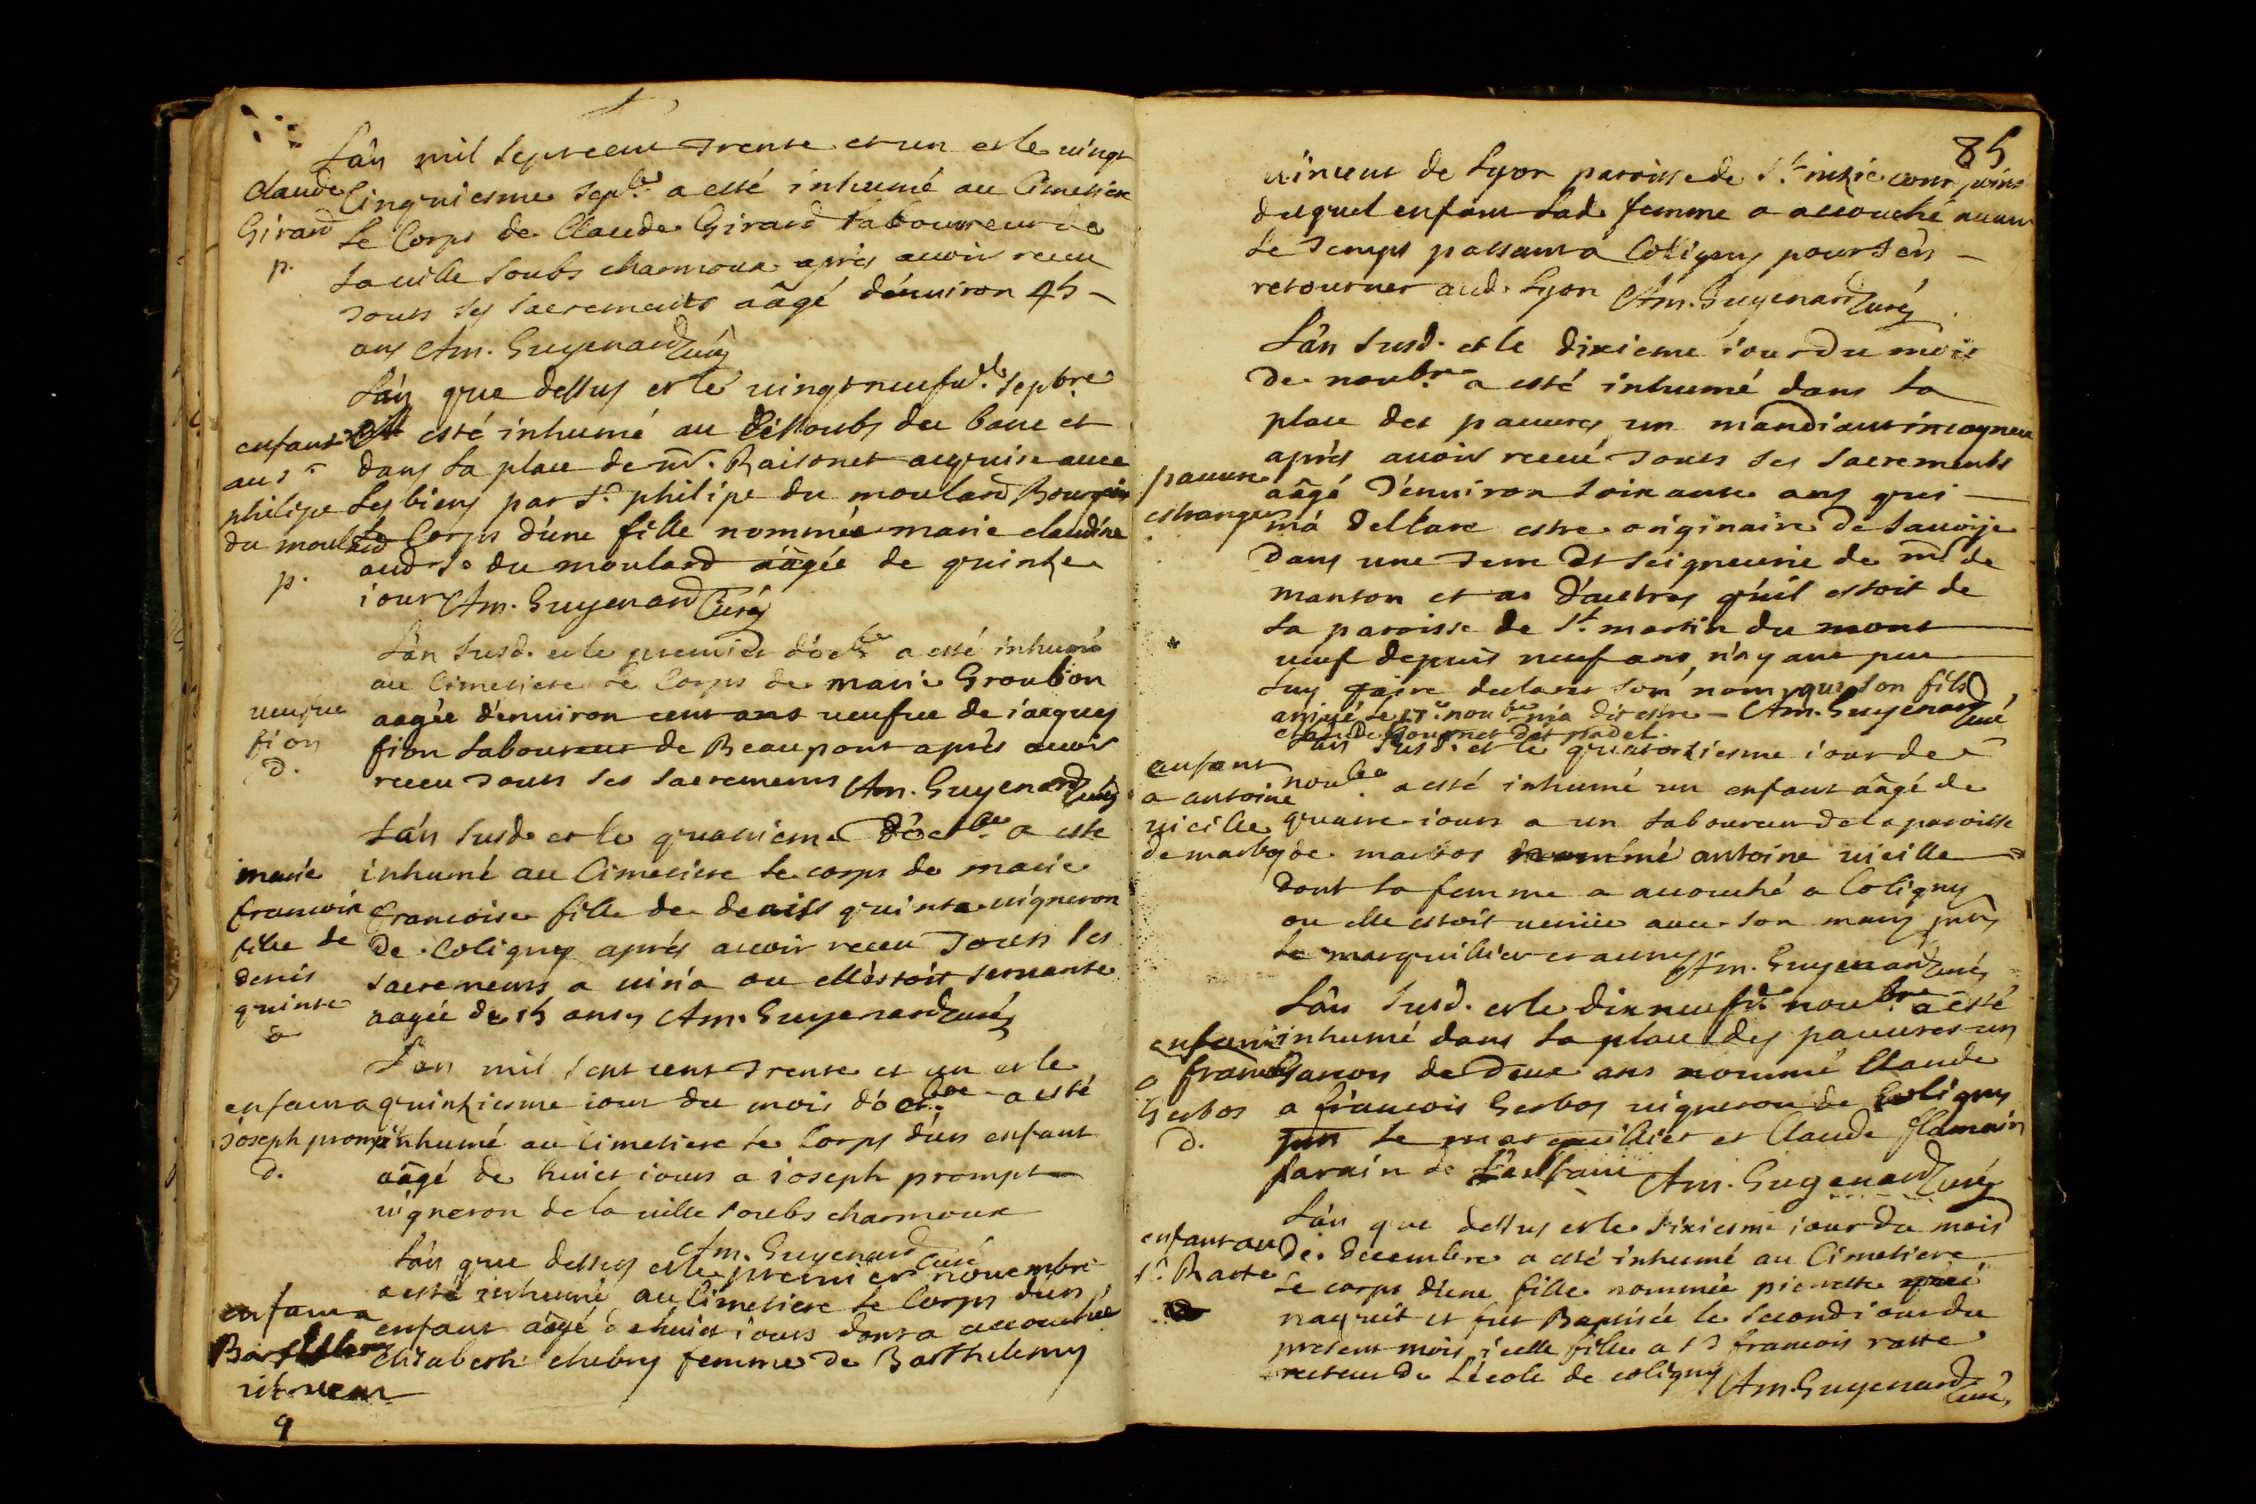 L'an mil sept cent trente et un et le vingt
Claude cinquiesme sepbre a esté inhumé au Cimetiere
Girard le Corps de Claude Girard laboureur de
p. la ville soubs charmoux apres avoir receu
tous les sacrements aâgé d'environ 45
ans Am. Guyenard Curé
L'an que dessus et le vingt neufu. d. sepbre
enfant esté inhumé au dessoubs du banc et
au sr dans la place de mr. Raisonet acquise avec
philipe les biens par sr philipe du moulard Bourgois
du moulard le Corps d'une fille nommée marie claudine
aud sr du moulard aâgée de quinze
p. iours Am. Guyenard Curé
L'an susd. et le premier d'octbre a esté inhumé
au Cimetiere le Corps de marie Groubon
veufue aagée d'environ cent ans veufue de iacques
fion fion laboureur de Beaupont après avoir
D. receu tous ses sacrements Am. Guyenard Curé
L'an susd. et le quatrieme d'octbre a esté
marie inhumé au Cimetiere le corps de marie
francoise francoise fille de denis quinte vigneron
fille de de Coligny aprés avoir receu tous les
denis sacrements a viria ou ell'estoit servante
quinte aagée de 15 ans Am. Guyenard Curé
L'an mil sept cent trente et un et le
enfant a quinziesme iour du mois d'octbre a esté
Joseph prompt inhumé au Cimetiere le Corps d'un enfant
D. aâgé de huict iours a ioseph prompt
vigneron de la ville soubs charmoux
Am. Guyenard Curé
L'an que dessus et le premier novembre
a esté inhumé au Cimetiere le Corps d'un
enfant a enfant aâgé de huict iours dont a accouchée
Elisabeth chubry femme de Barthelemy
9
85
vincent de Lyon paroisse de St. nizie
duquel enfant lad. femme a accouché avant
le temps passant a Coligny pour s'en
retourner aud. Lyon Am. Guyenard Curé
L'an susd. et le dixieme iour du mois
de novbre a esté inhumé dans la
place des pauvres un mandiant incogneu
aprés avoir receu tous ses sacrements
pauvre aâgé d'environ soixante ans qui
estranger m'a desclaré estre originaire de savoije
dans une terre et seigneurie de mr. de
manton et a d'autres qu'il estoit de
la paroisse de St. martin du mont
veuf depuis neuf ans, n'ayant peu
luy faire declarer son nom, que son fils
arrivé le 17e. novbre m'a dit estre Am. Guyenard Curé
claude
L'an susd. et le quatorziesme iour de
enfant novbre a esté inhumé un enfant aâgé de
a antoine quatre iours a un laboureur de la paroisse
vieille de marbos nommé antoine vieille
de marbos dont la femme a accouché a Coligny
ou elle estoit venüe avec son mary pnts
le marguillier et autres Am. Guyenard Curé
L'an susd. et le dix neuf d. novbre a esté
enfant inhumé dans la place des pauvres un
a francois Garcon de deux ans nommé Claude
Gerbos a francois Gerbos vigneron de Coligny
D. pnts le marguillier et Claude flamain
parain de l'enfant Am. Guyenard Curé
L'an que dessus et le sixiesme iour du mois
enfant au De decembre a esté inhumé au Cimetiere
sr. Ratte le corps d'une fille nommée pierrette
naquit et fut Baptisée le second iour du
present mois, icelle fille a sr francois ratte
recteur de L'école de coligny Am. Guyenard Curé